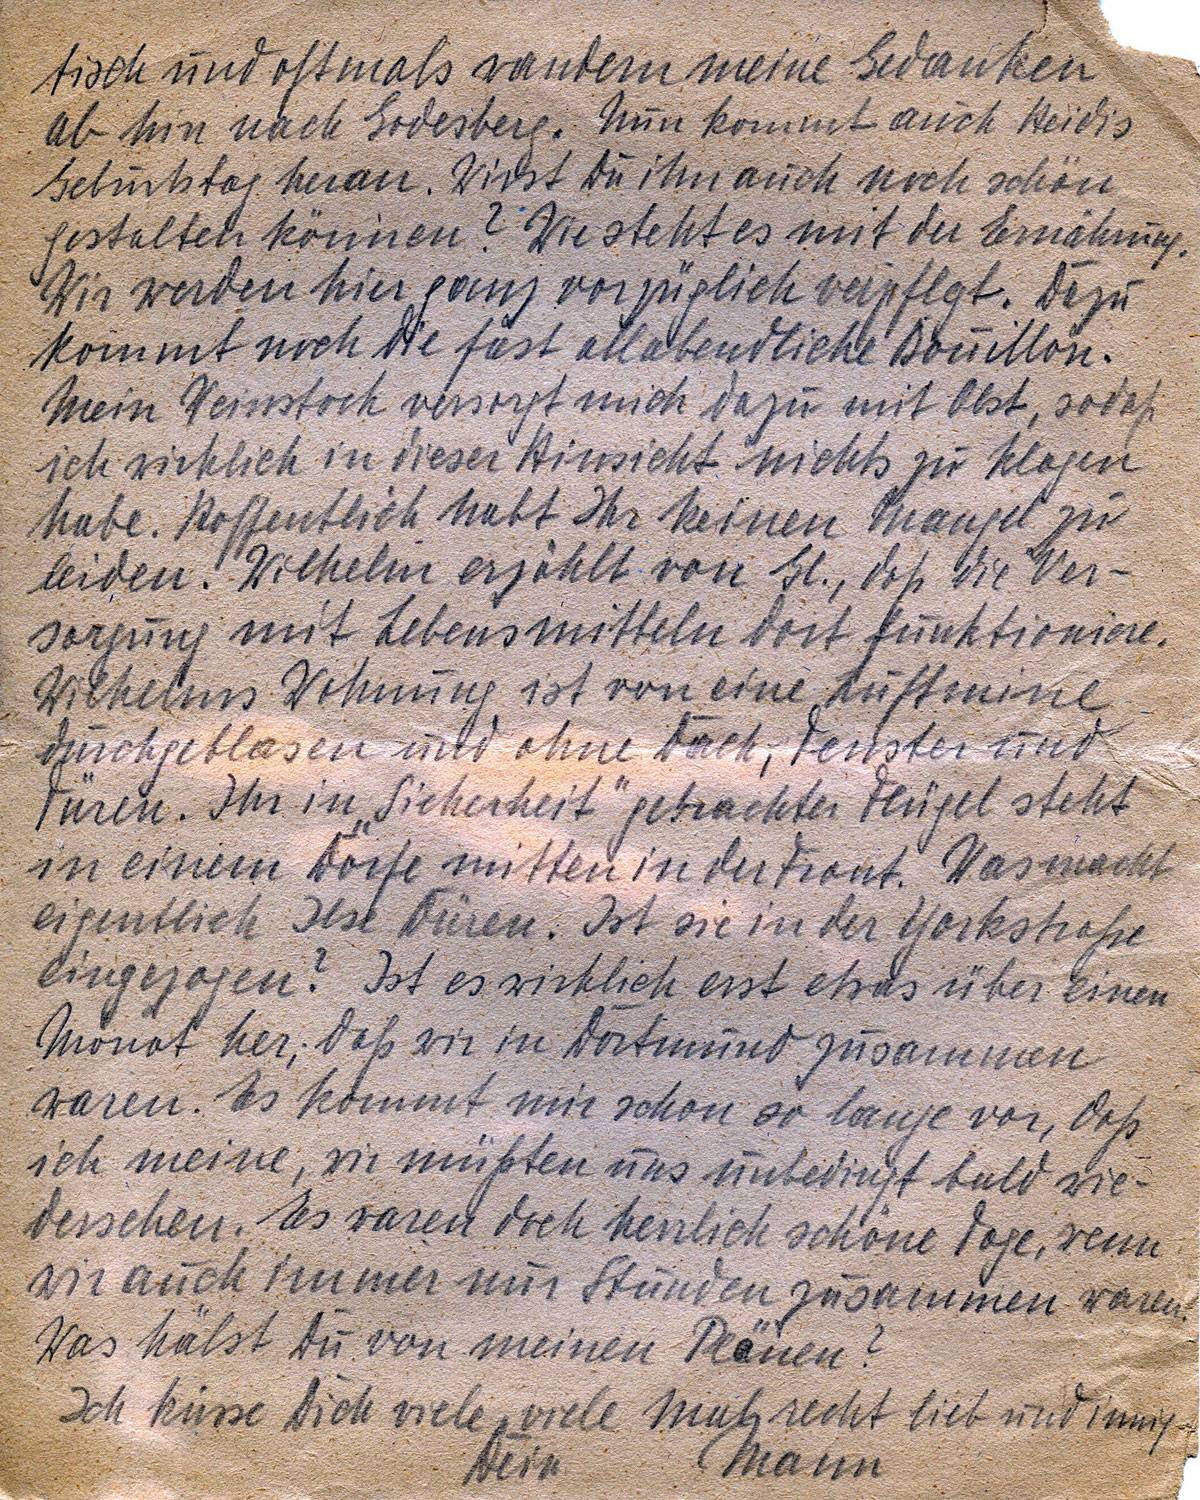 tisch und oftmals wandern meine Gedanken
ab hin nach Godesberg. Nun kommt auch Heidis
Geburtstag heran. Wirst Du ihn auch noch schön
gestalten können? Wie steht es mit der Ernährung.
Wir werden hier ganz vorzüglich verpflegt. Dazu
kommt noch die fast allabendliche Bouillon.
Mein Weinstock versorgt mich dazu mit Obst, sodaß
ich wirklich in dieser Hinsicht nichts zu klagen
habe. Hoffentlich habt Ihr keinen Mangel zu
leiden. Wilhelm erzählt von Gl., daß die Ver-
sorgung mit Lebensmitteln dort funktioniere.
Wilhelms Wohnung ist von eine Luftmine
durchgeblasen und ohne Dach, Fenster und
Türen. Ihr in „Sicherheit" gebrachter Flügel steht
in einem Dorfe mitten in der Front. Was macht
eigentlich Ilse Düren. Ist sie in der Yorkstraße
eingezogen? Ist es wirklich erst etwas über einen
Monat her, daß wir in Dortmund zusammen
waren. Es kommt mir schon so lange vor, daß
ich meine, wir müßten uns unbedingt bald wie-
dersehen. Es waren doch herrlich schöne Tage, wenn
wir auch immer nur Stunden zusammen waren.
Was hälst Du von meinen Plänen?
Ich küsse Dich viele, viele Mal, recht lieb und innig
Dein Mann